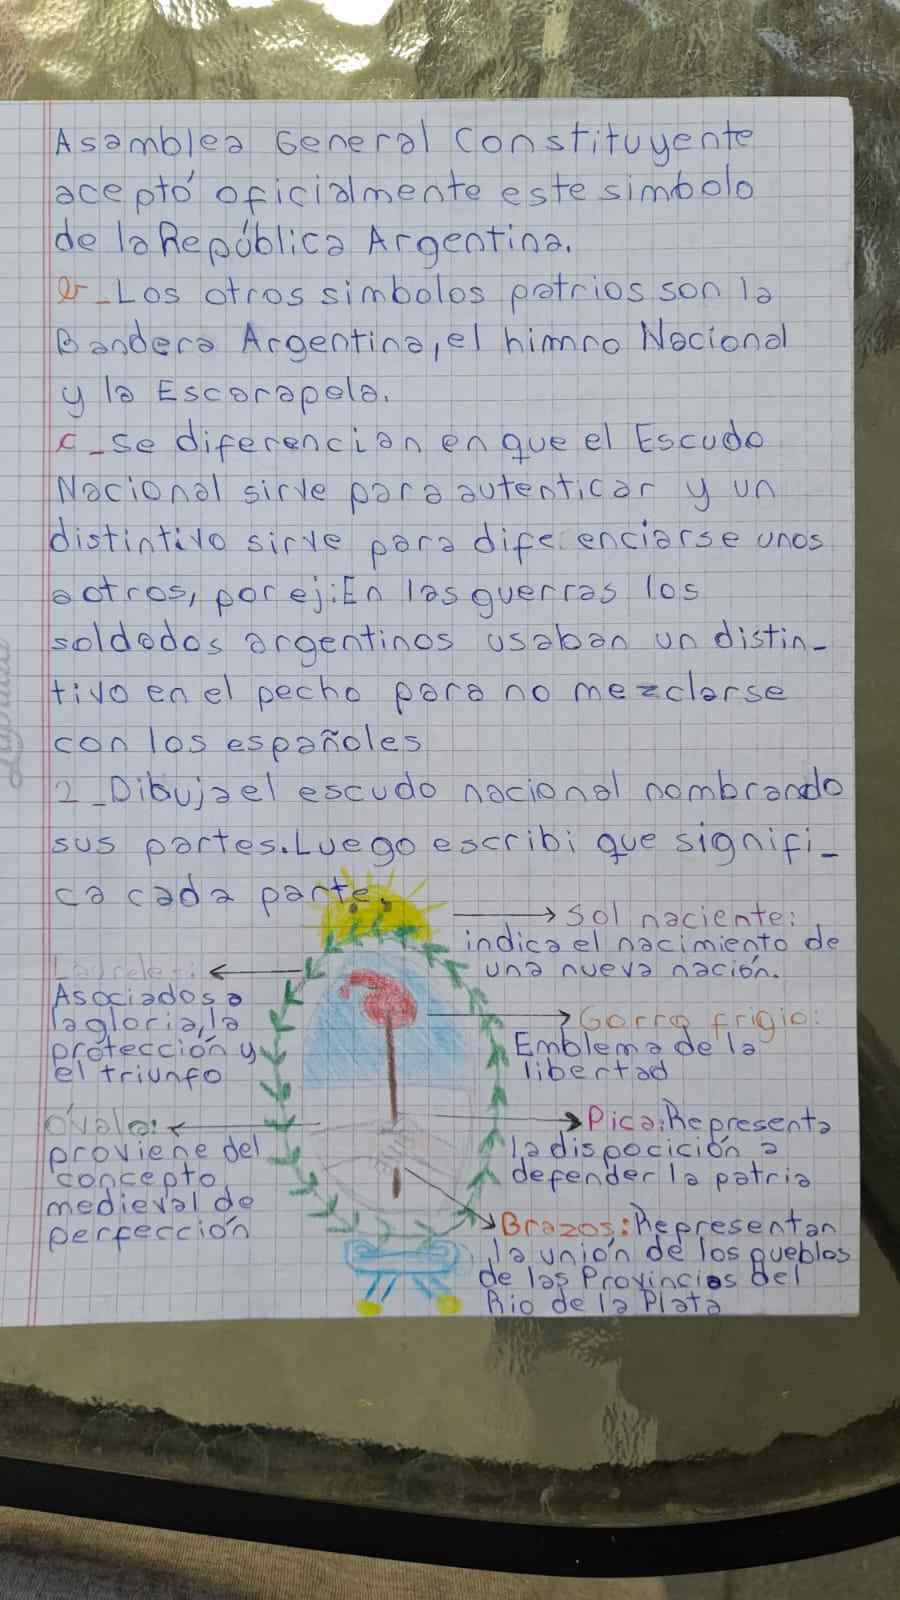 Asamblea General Constituyente
aceptó oficialmente este simbolo
de la República Argentina.
b_Los otros simbolos patrios son la
Bandera Argentina, el himno Nacional
y la Escarapela.
c_se diferencian en que el Escudo
Nacional sirve para autenticar y un
distintivo sirve para dife enciarse unos
a otros, por ej: En las guerras los
soldados argentinos usaban un distin_
tivo en el pecho para no mezclarse
con los españoles
2_Dibuja el escudo nacional nombrando
sus partes. Luego escribi que signifi_
ca cada parte.
Sol naciente:
indica el nacimiento de
una nueva nación.
Laureles:
Asociados a
la gloria, la
protección y
el triunfo
Gorro frigio:
Emblema de la
libertad
Óvalo:
proviene del
concepto
medieval de
perfección
Pica: Representa
la disposición a
defender la patria
Brazos: Representan
la unión de los pueblos
de las Provincias del
Rio de la Plata